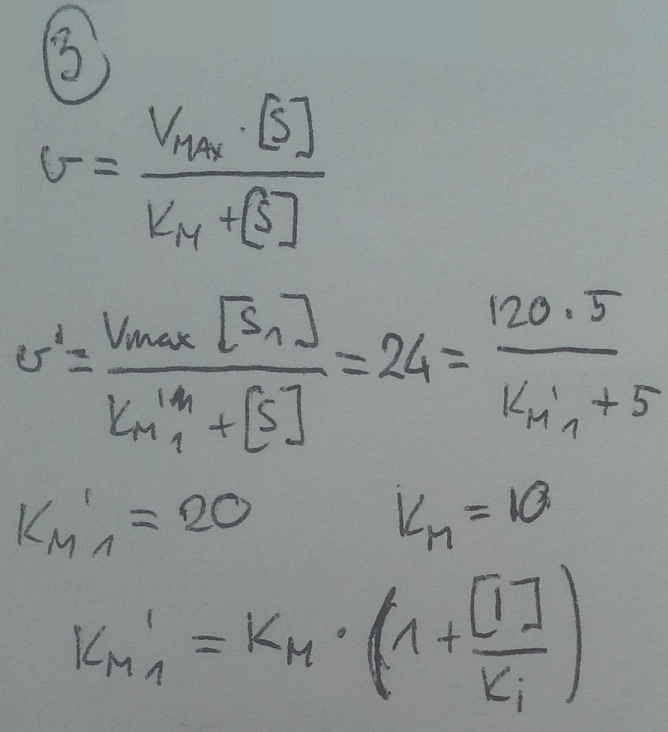 3
v = (V_MAX · [S]) / (K_M + [S])
v' = (Vmax [S_1]) / (K_M'_1 + [S]) = 24 = (120 · 5) / (K_M'_1 + 5)
K_M'_1 = 20 K_M = 10
K_M'_1 = K_M · (1 + [I] / K_i)